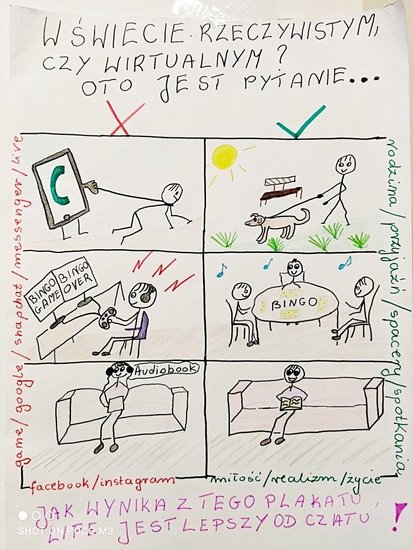 W ŚWIECIE RZECZYWISTYM,
CZY WIRTUALNYM?
OTO JEST PYTANIE...
game/google/snapchat/messenger/live
rodzina/przyjaźń/spacery/spotkania
BINGO BINGO
GAME OVER
BINGO
Audiobook
facebook/instagram
miłość/realizm/życie
JAK WYNIKA Z TEGO PLAKATU,
JEST LEPSZY OD CZATU!
SHOT ON POCO M3